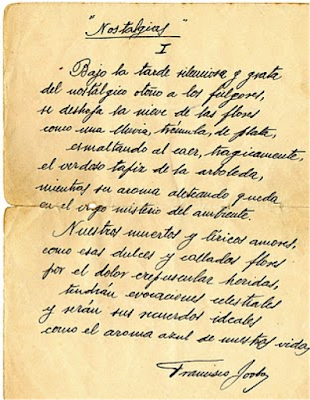 "Nostalgias"
I
"Bajo la tarde silenciosa y grata
del nostálgico otoño a los fulgores,
se deshoja la nieve de las flores
como una lluvia, trémula, de plata,
esmaltando al caer, trágicamente,
el verdoso tapiz de la arboleda,
mientras su aroma aleteando queda
en el vago misterio del ambiente.
Nuestros muertos y líricos amores,
como esas dulces y calladas flores
por el dolor crepuscular heridas,
tendrán evocaciones celestiales
y serán sus recuerdos ideales
como el aroma azul de nuestras vidas
Francisco